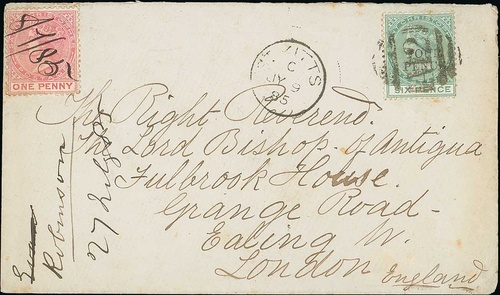 8/7/85
ONE PENNY
ST KITTS
C
JY 9
85
ST. CHRISTOPHER
SIX PENCE
The Right Reverend.
The Lord Bishop of Antigua
Fulbrook House.
Grange Road-
Ealing W.
London
England
Robinson
27 July 85